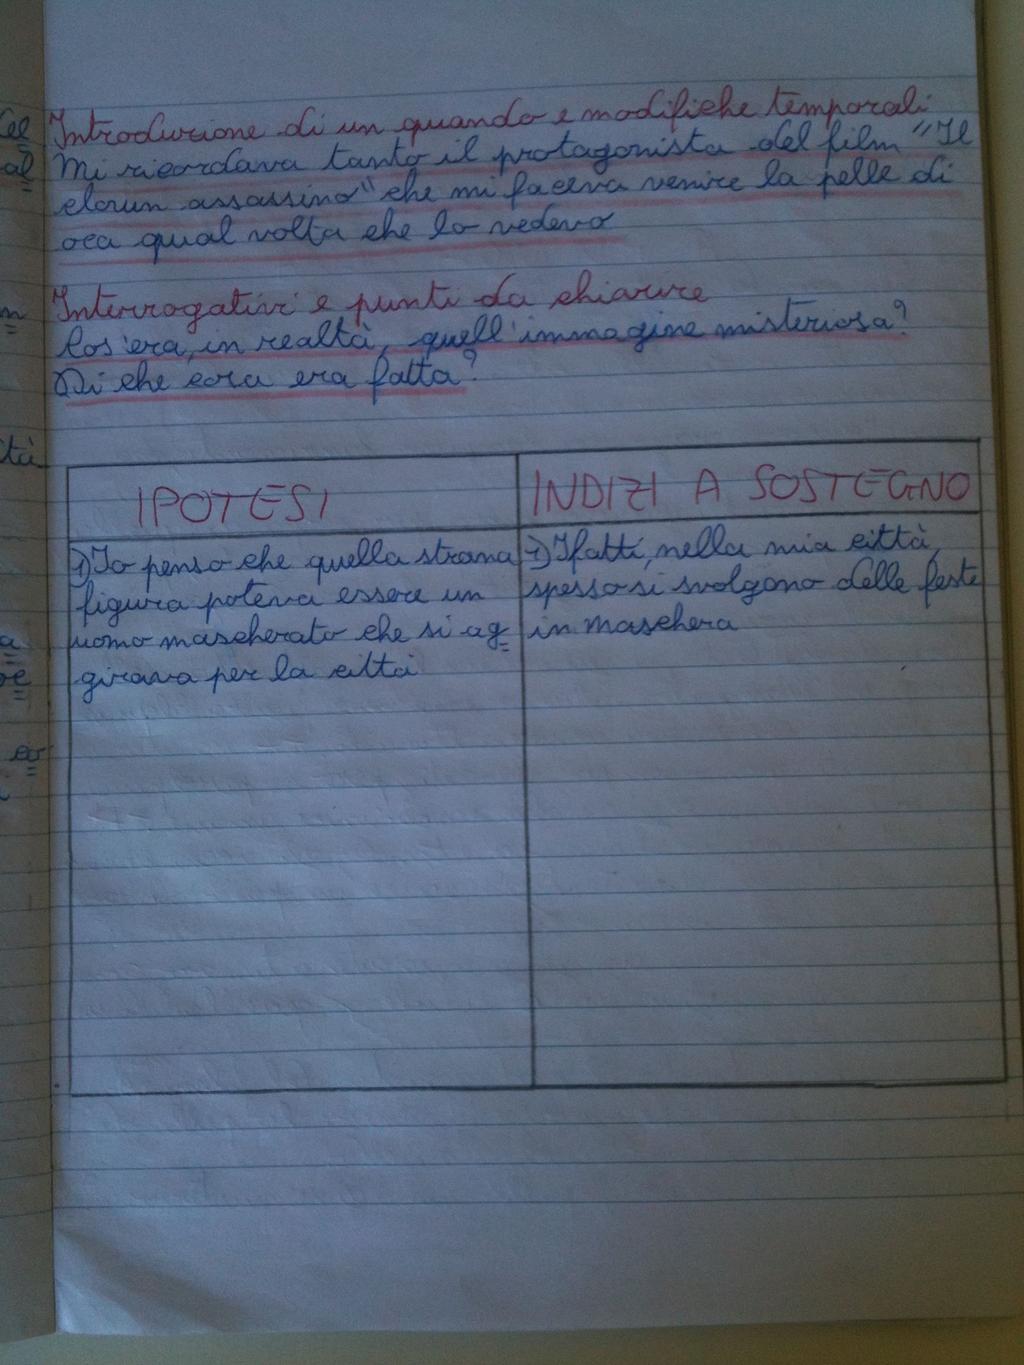 Introduzione di un quando e modifiche temporali
Mi ricordava tanto il protagonista del film "Il
clown assassino" che mi faceva venire la pelle di
oca qual volta che lo vedevo
Interrogativi e punti da chiarire
Cos'era, in realtà, quell'immagine misteriosa?
Di che cosa era fatta?
IPOTESI
INDIZI A SOSTEGNO
1) Io penso che quella strana
figura poteva essere un
uomo mascherato che si ag=
girava per la città
1) Ifatti, nella mia città,
spesso si svolgono delle feste
in maschera